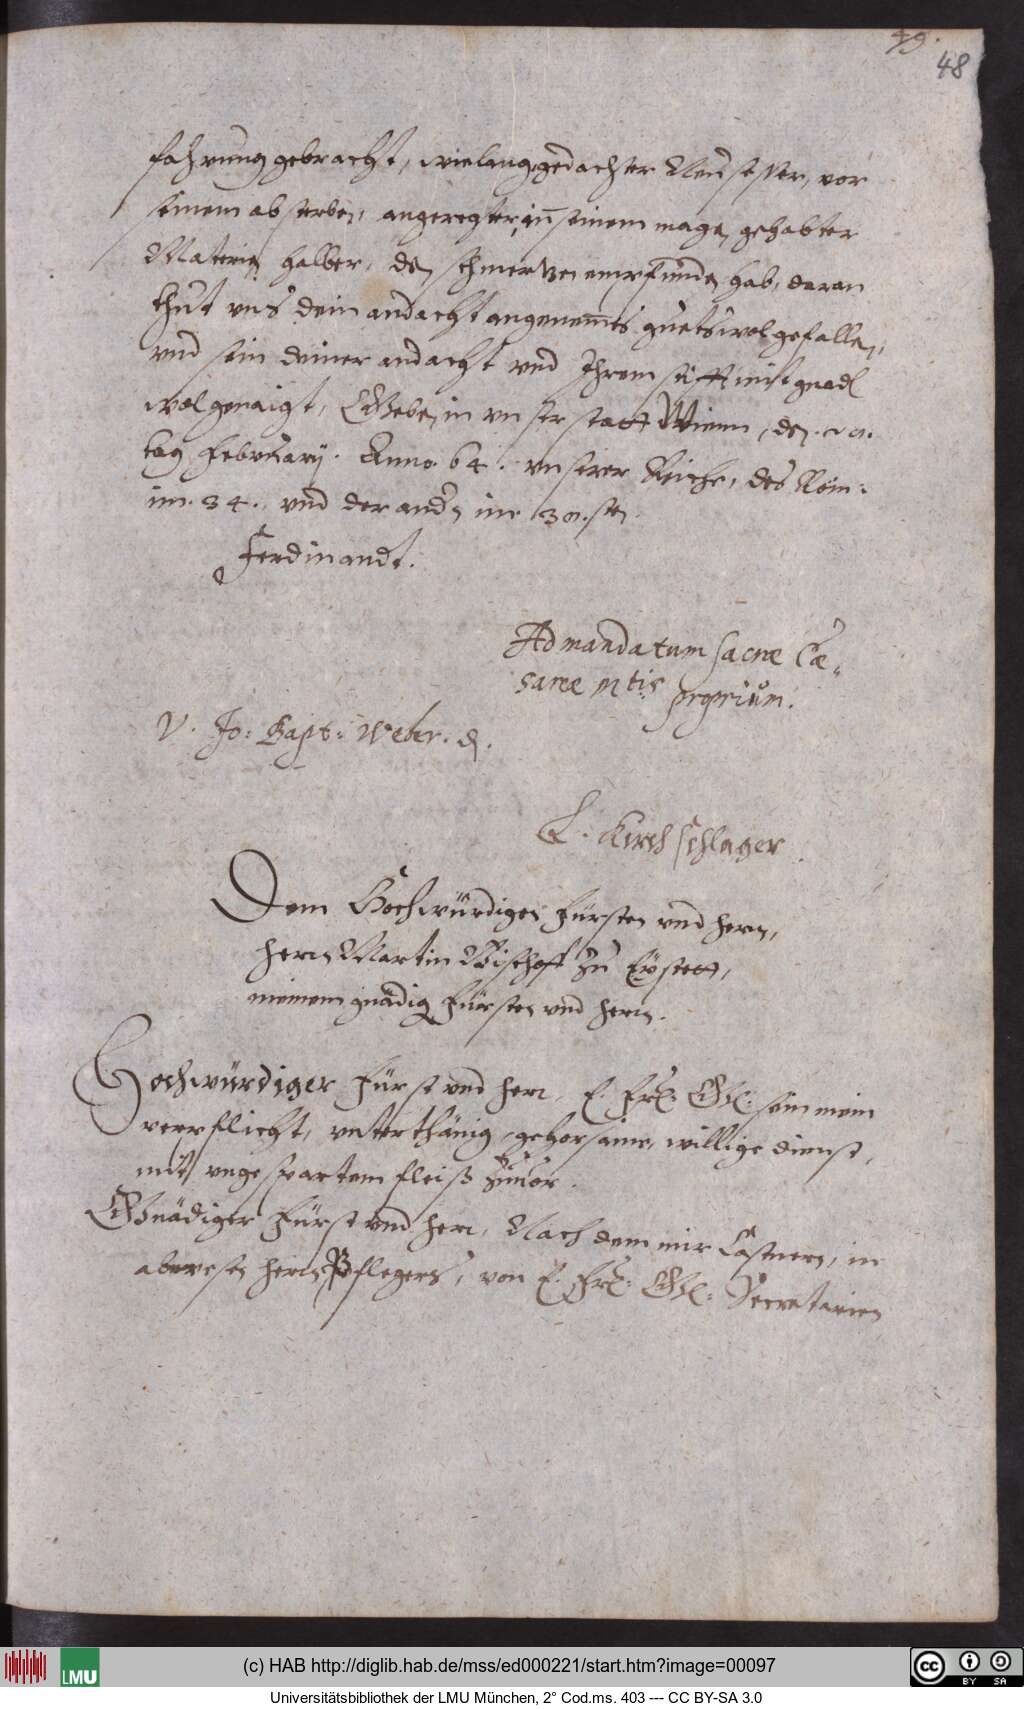 49.
48
fahrung gebracht, wielang gedachter Neusesser, vor
seinem absterben, angeregter, in seinem magen gehabter
Materien halber, den schmertzen empfunden hab, daran
thut uns dein andacht angenemes guets wolgefallen,
und sein deiner andacht und Ihrem stifft mit gnaden
wol genaigt, Geben in unser statt Wienn, den
tag februarij. Anno. 64. unserer Reiche, des Röm:
im. 34. und der andern im 38.sten
Ferdinandt.
Ad mandatum sacræ Cæ=
sareæ Mtis proprium.
V. Jo: Bapt: Weber. d.
L. Kirchschlager
Dem Hochwürdigen Fürsten und herrn,
herrn Martin Bischoff zu Eystett,
meinem gnädigen Fürsten und herrn.
Hochwürdiger Fürst und herr, E. Frl: Gl: sein mein
verpflicht, unterthänig, gehorsame, willige dienst,
mit ungespartem fleiß zuuor.
Gnädiger Fürst und herr, Nach dem mir Castnern, in
abwesen herrn Pflegers, von E. Frl: Gl: Secretarien
LMU
(c) HAB http://diglib.hab.de/mss/ed000221/start.htm?image=00097
cc BY SA
Universitätsbibliothek der LMU München, 2° Cod.ms. 403 --- CC BY-SA 3.0